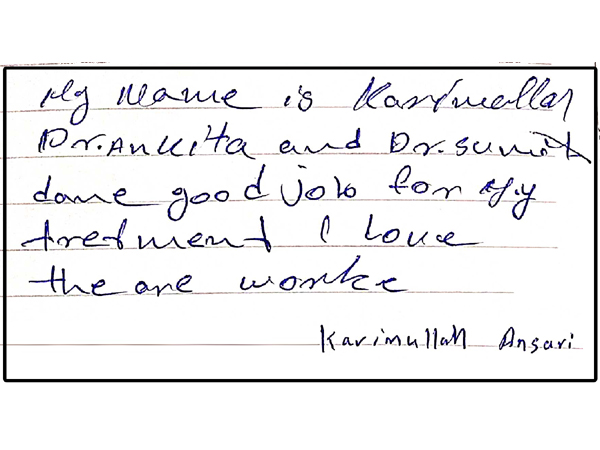 My Name is Karimullah
Dr. Ankita and Dr. Sumit
done good job for My
tretment I Love
the are worke
Karimullah Ansari